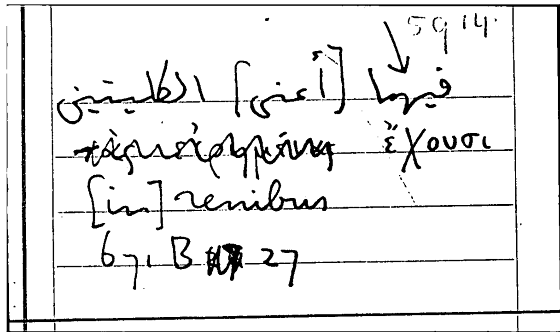 59 14
فيها [أعني] الكليتين
ἔχουσι
[in] renibus
671 B 27